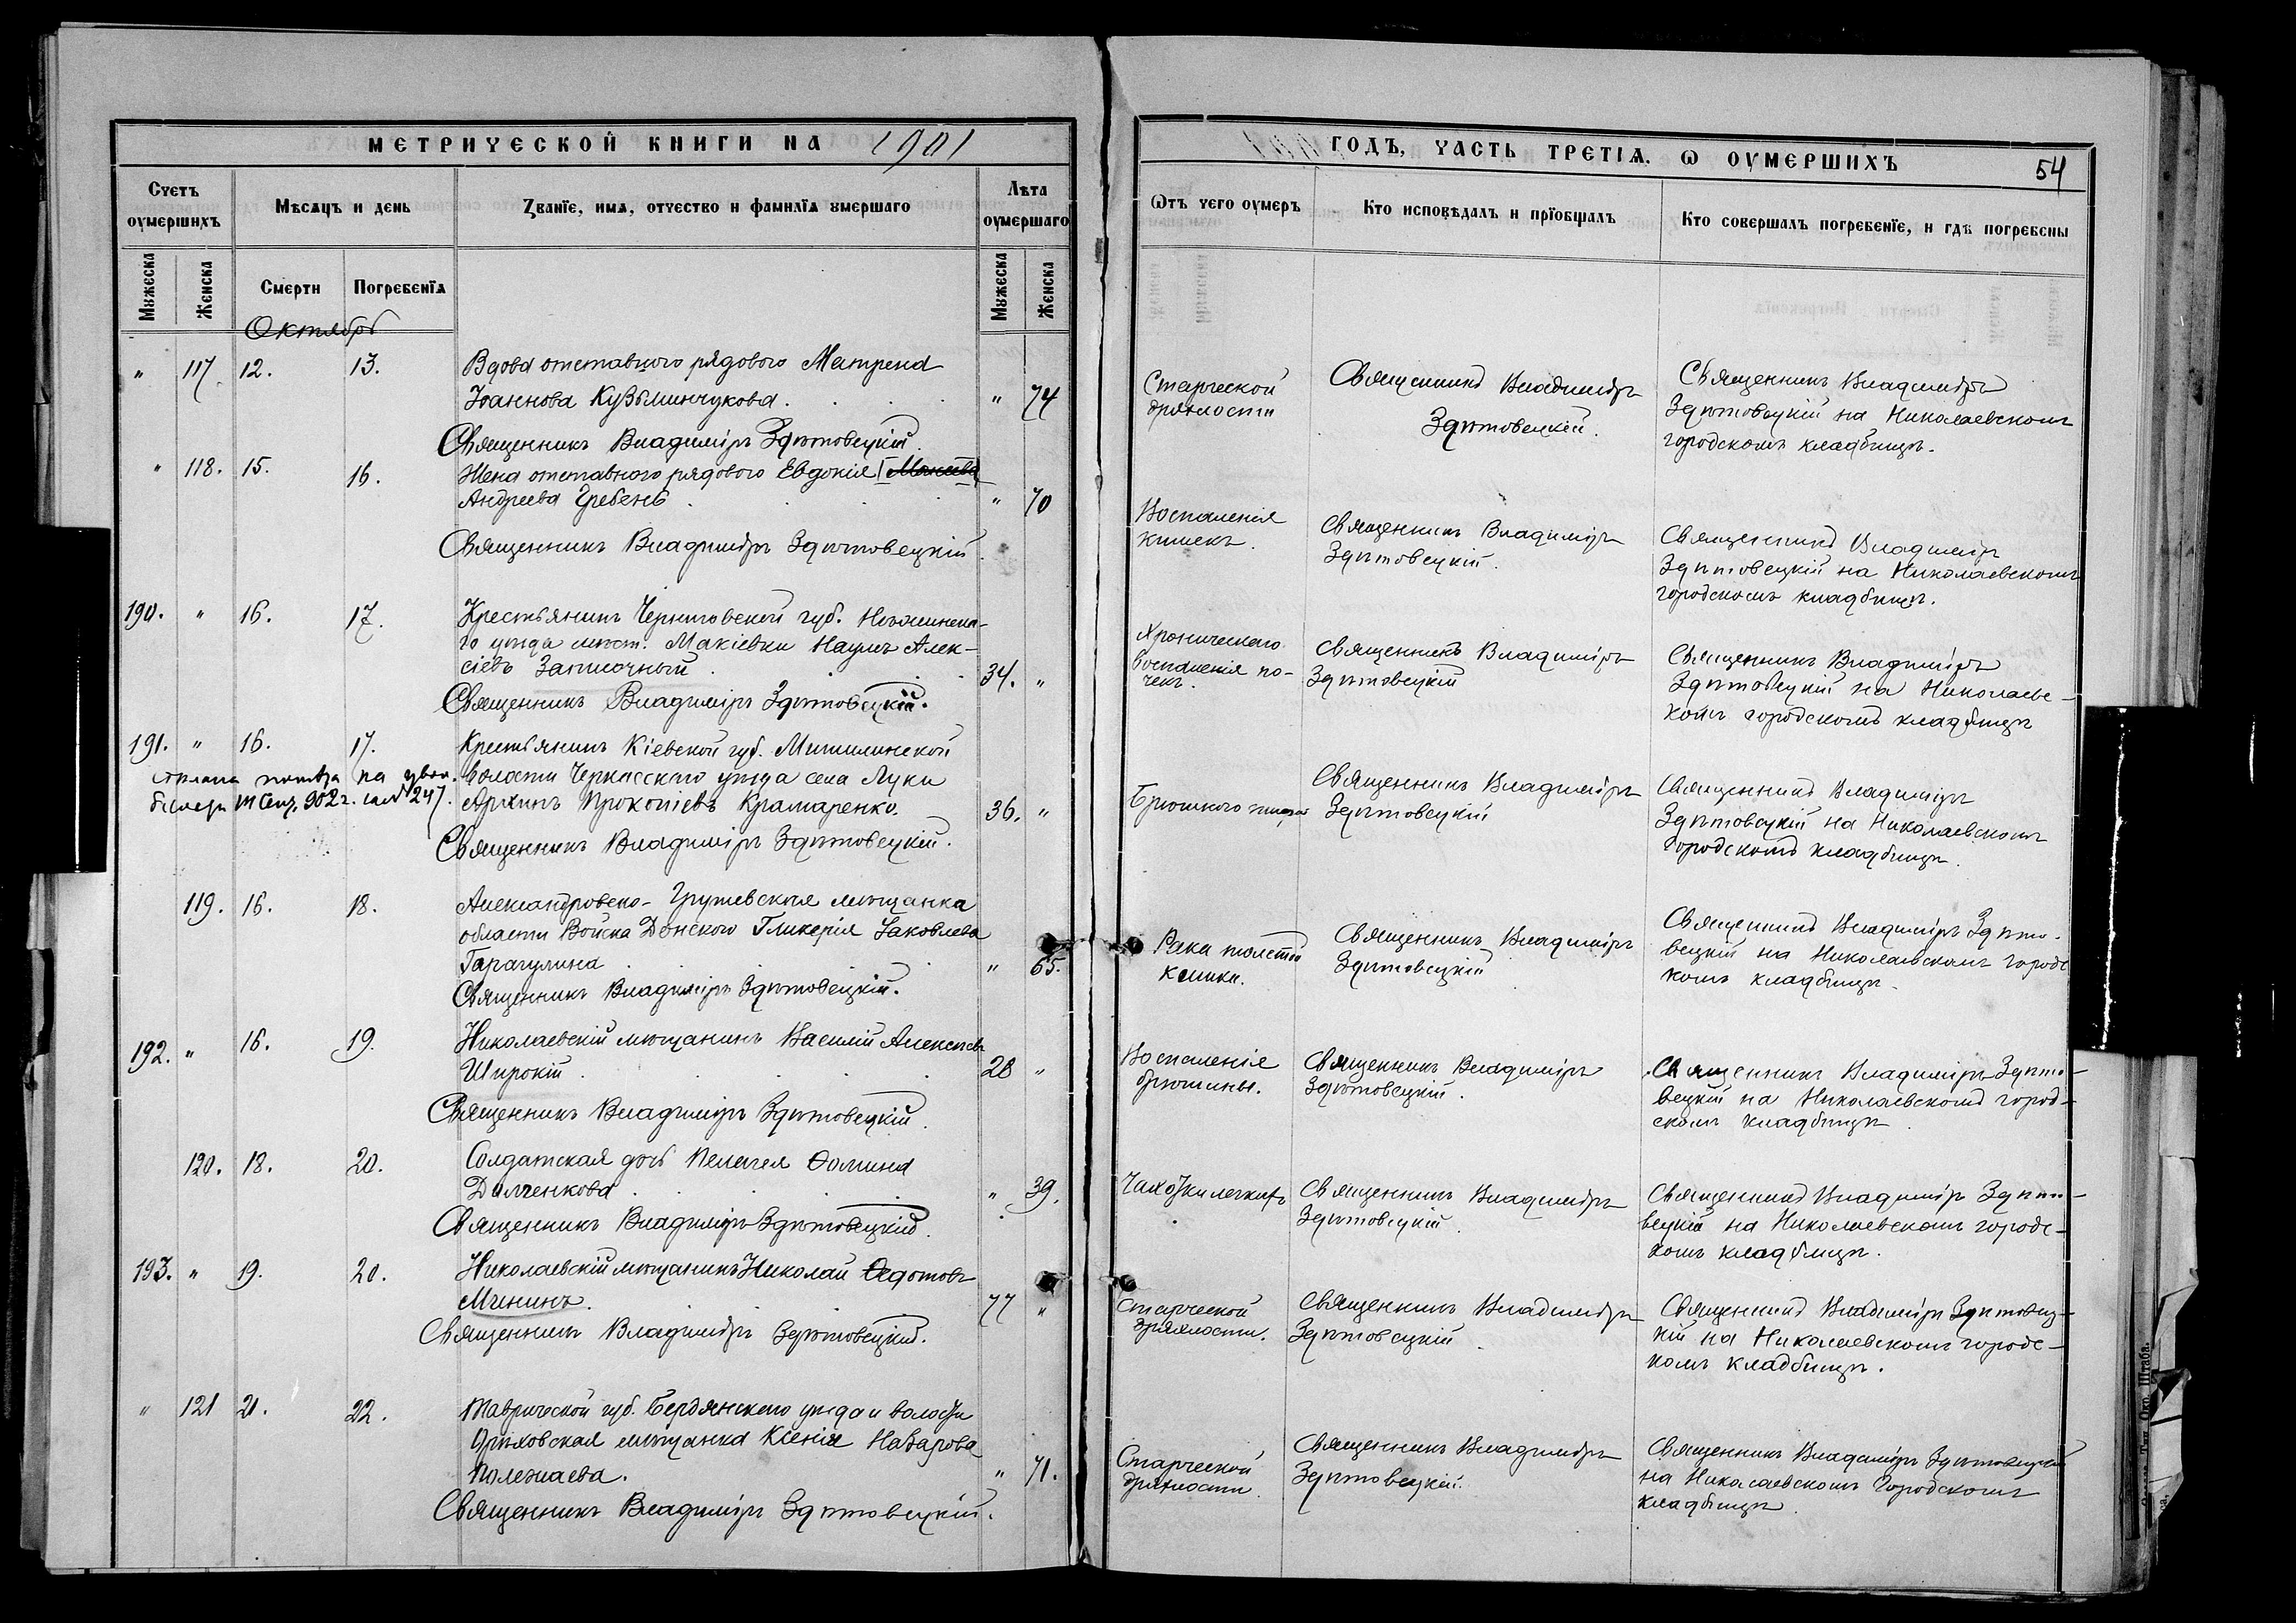 МЕТРИЧЕСКОЙ КНИГИ НА 1901
ГОДЪ, ЧАСТЬ ТРЕТІЯ. Ѡ ОУМЕРШИХЪ
54
Счетъ оумершихъ
Мѣсяцъ и день
Званїе, имя, отчество и фамилїя умершаго
Лѣта оумершаго
Ѿтъ чего оумеръ
Кто исповѣдалъ и прїобщалъ
Кто совершалъ погребенїе, и гдѣ погребены
Мужеска
Женска
Смерти
Погребенїя
Мужеска
Женска
Октябрь
" 117. 12. 13.
Вдова отставного рядового Матрена
Іоаннова Кузьминчукова. " 74
Священникъ Владиміръ Здѣтовецкій.
Старческой
дряхлости
Священникъ Владиміръ
Здѣтовецкій.
Священникъ Владиміръ
Здѣтовецкій на Николаевскомъ
городскомъ кладбищѣ.
" 118. 15. 16.
Жена отставного рядового Евдокія
Андреева Гребень. " 70
Священникъ Владиміръ Здѣтовецкій.
Воспаленія
кишекъ.
Священникъ Владиміръ
Здѣтовецкій.
Священникъ Владиміръ
Здѣтовецкій на Николаевскомъ
городскомъ кладбищѣ.
190. " 16. 17.
Крестьянинъ Черниговской губ. Нѣжинска-
го уѣзда мѣст. Макіевки Наумъ Алек-
сіевъ 34. "
Священникъ Владиміръ Здѣтовецкій.
Хроническаго
воспаленія по-
чекъ.
Священникъ Владиміръ
Здѣтовецкій
Священникъ Владиміръ
Здѣтовецкій на Николаевс-
комъ городскомъ кладбищѣ
191. " 16. 17.
Крестьянинъ Кіевской губ. Мошинской
волости Черкасскаго уѣзда села Луки
Прокопіевъ Крамаренко. 36. "
902 г. 247.
Священникъ Владиміръ Здѣтовецкій.
Брюшного тифа
Священникъ Владиміръ
Здѣтовецкій
Священникъ Владиміръ
Здѣтовецкій на Николаевскомъ
городскомъ кладбищѣ.
119. 16. 18.
Александровско-Грушевская мѣщанка
области Войска Донского Гликерія Іаковлева
Гарагулина " 65.
Священникъ Владиміръ Здѣтовецкій.
Рака толстой
кишки.
Священникъ Владиміръ
Здѣтовецкій
Священникъ Владиміръ Здѣто-
вецкій на Николаевскомъ городс
комъ кладбищѣ.
192. " 16. 19.
Николаевскій мѣщанинъ Василій Алексѣевъ
Широкій. 28 "
Священникъ Владиміръ Здѣтовецкій.
Воспаленія
брюшины.
Священникъ Владиміръ
Здѣтовецкій.
Священникъ Владиміръ Здѣто-
вецкій на Николаевскомъ город-
скомъ кладбищѣ.
120. 18. 20.
Солдатская дочь Пелагея Ѳомина
" 39.
Священникъ Владиміръ Здѣтовецкій.
Чахотки легкихъ
Священникъ Владиміръ
Здѣтовецкій.
Священникъ Владиміръ Здѣто-
вецкій на Николаевскомъ городс-
комъ кладбищѣ.
193. " 19. 20.
Николаевскій мѣщанинъ Николай Ѳедотовъ
Мининъ. 77 "
Священникъ Владиміръ Здѣтовецкій.
Старческой
дряхлости.
Священникъ Владиміръ
Здѣтовецкій.
Священникъ Владиміръ Здѣтовец-
кій на Николаевскомъ городс-
комъ кладбищѣ.
" 121 21. 22.
Таврической губ. Бердянскаго уѣзда и волости
Орѣховская мѣщанка Ксенія Назарова
Полежаева. " 71.
Священникъ Владиміръ Здѣтовецкій.
Старческой
дряхлости.
Священникъ Владиміръ
Здѣтовецкій.
Священникъ Владиміръ Здѣтовецкій
на Николаевскомъ Городскомъ
кладбищѣ.